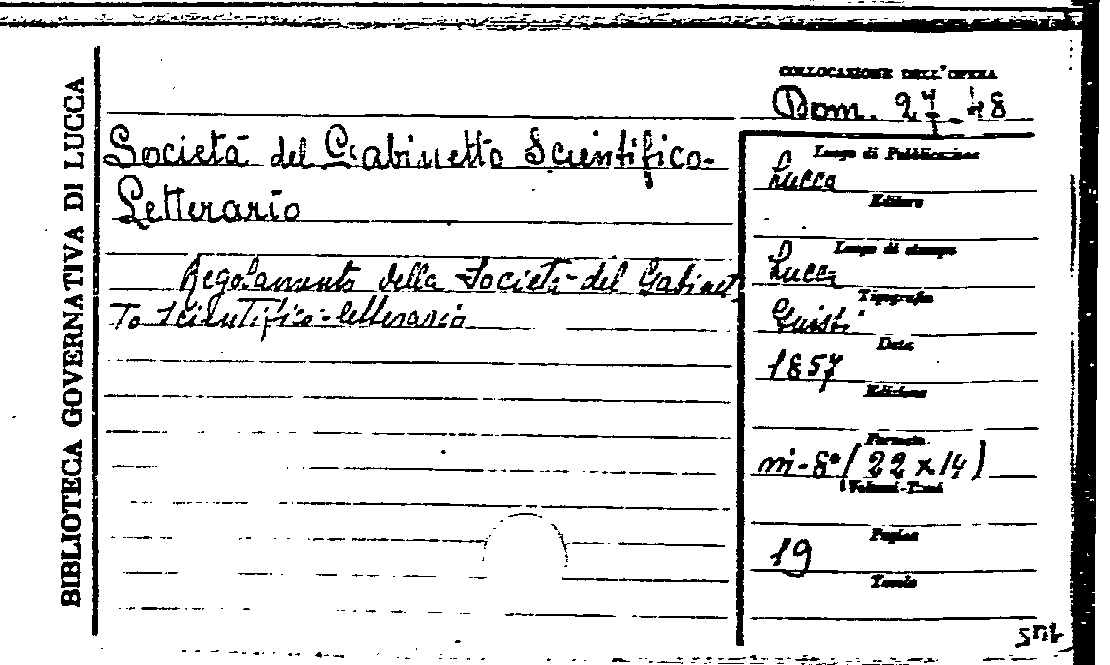 BIBLIOTECA GOVERNATIVA DI LUCCA
COLLOCAZIONE DELL'OPERA
Dom.
Società del Gabinetto Scientifico-
Letterario
Regolamento della Società del Gabinet
to scientifico-letterario
Luogo di Pubblicazione
Lucca
Editore
Luogo di stampa
Lucca
Tipografia
Giusti
Data
1857
Edizione
Formato
in-8° (22 x 14)
Volumi-Tomi
Pagine
19
Tavole